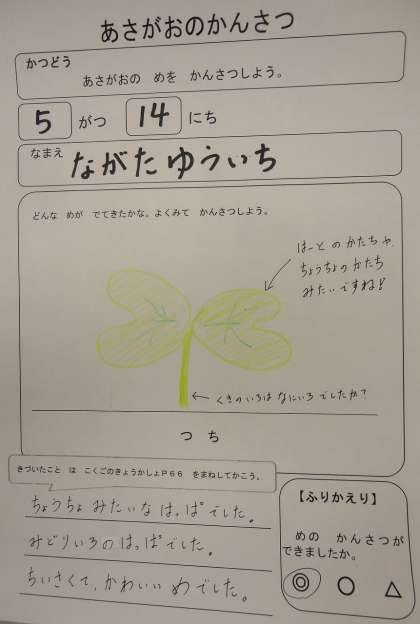 あさがおのかんさつ
かつどう
あさがおの めを かんさつしよう。
5 がつ 14 にち
なまえ ながたゆういち
どんな めが でてきたかな。よくみて かんさつしよう。
はーとのかたちや、
ちょうちょのかたち
みたいですね!
くきのいろは なにいろ でしたか?
つち
きづいたこと は こくごのきょうかしょP66 をまねしてかこう。
ちょうちょ みたいな はっぱでした。
みどりいろの はっぱでした。
ちいさくて、かわいい めでした。
【ふりかえり】
めの かんさつが
できましたか。
◎ ○ △